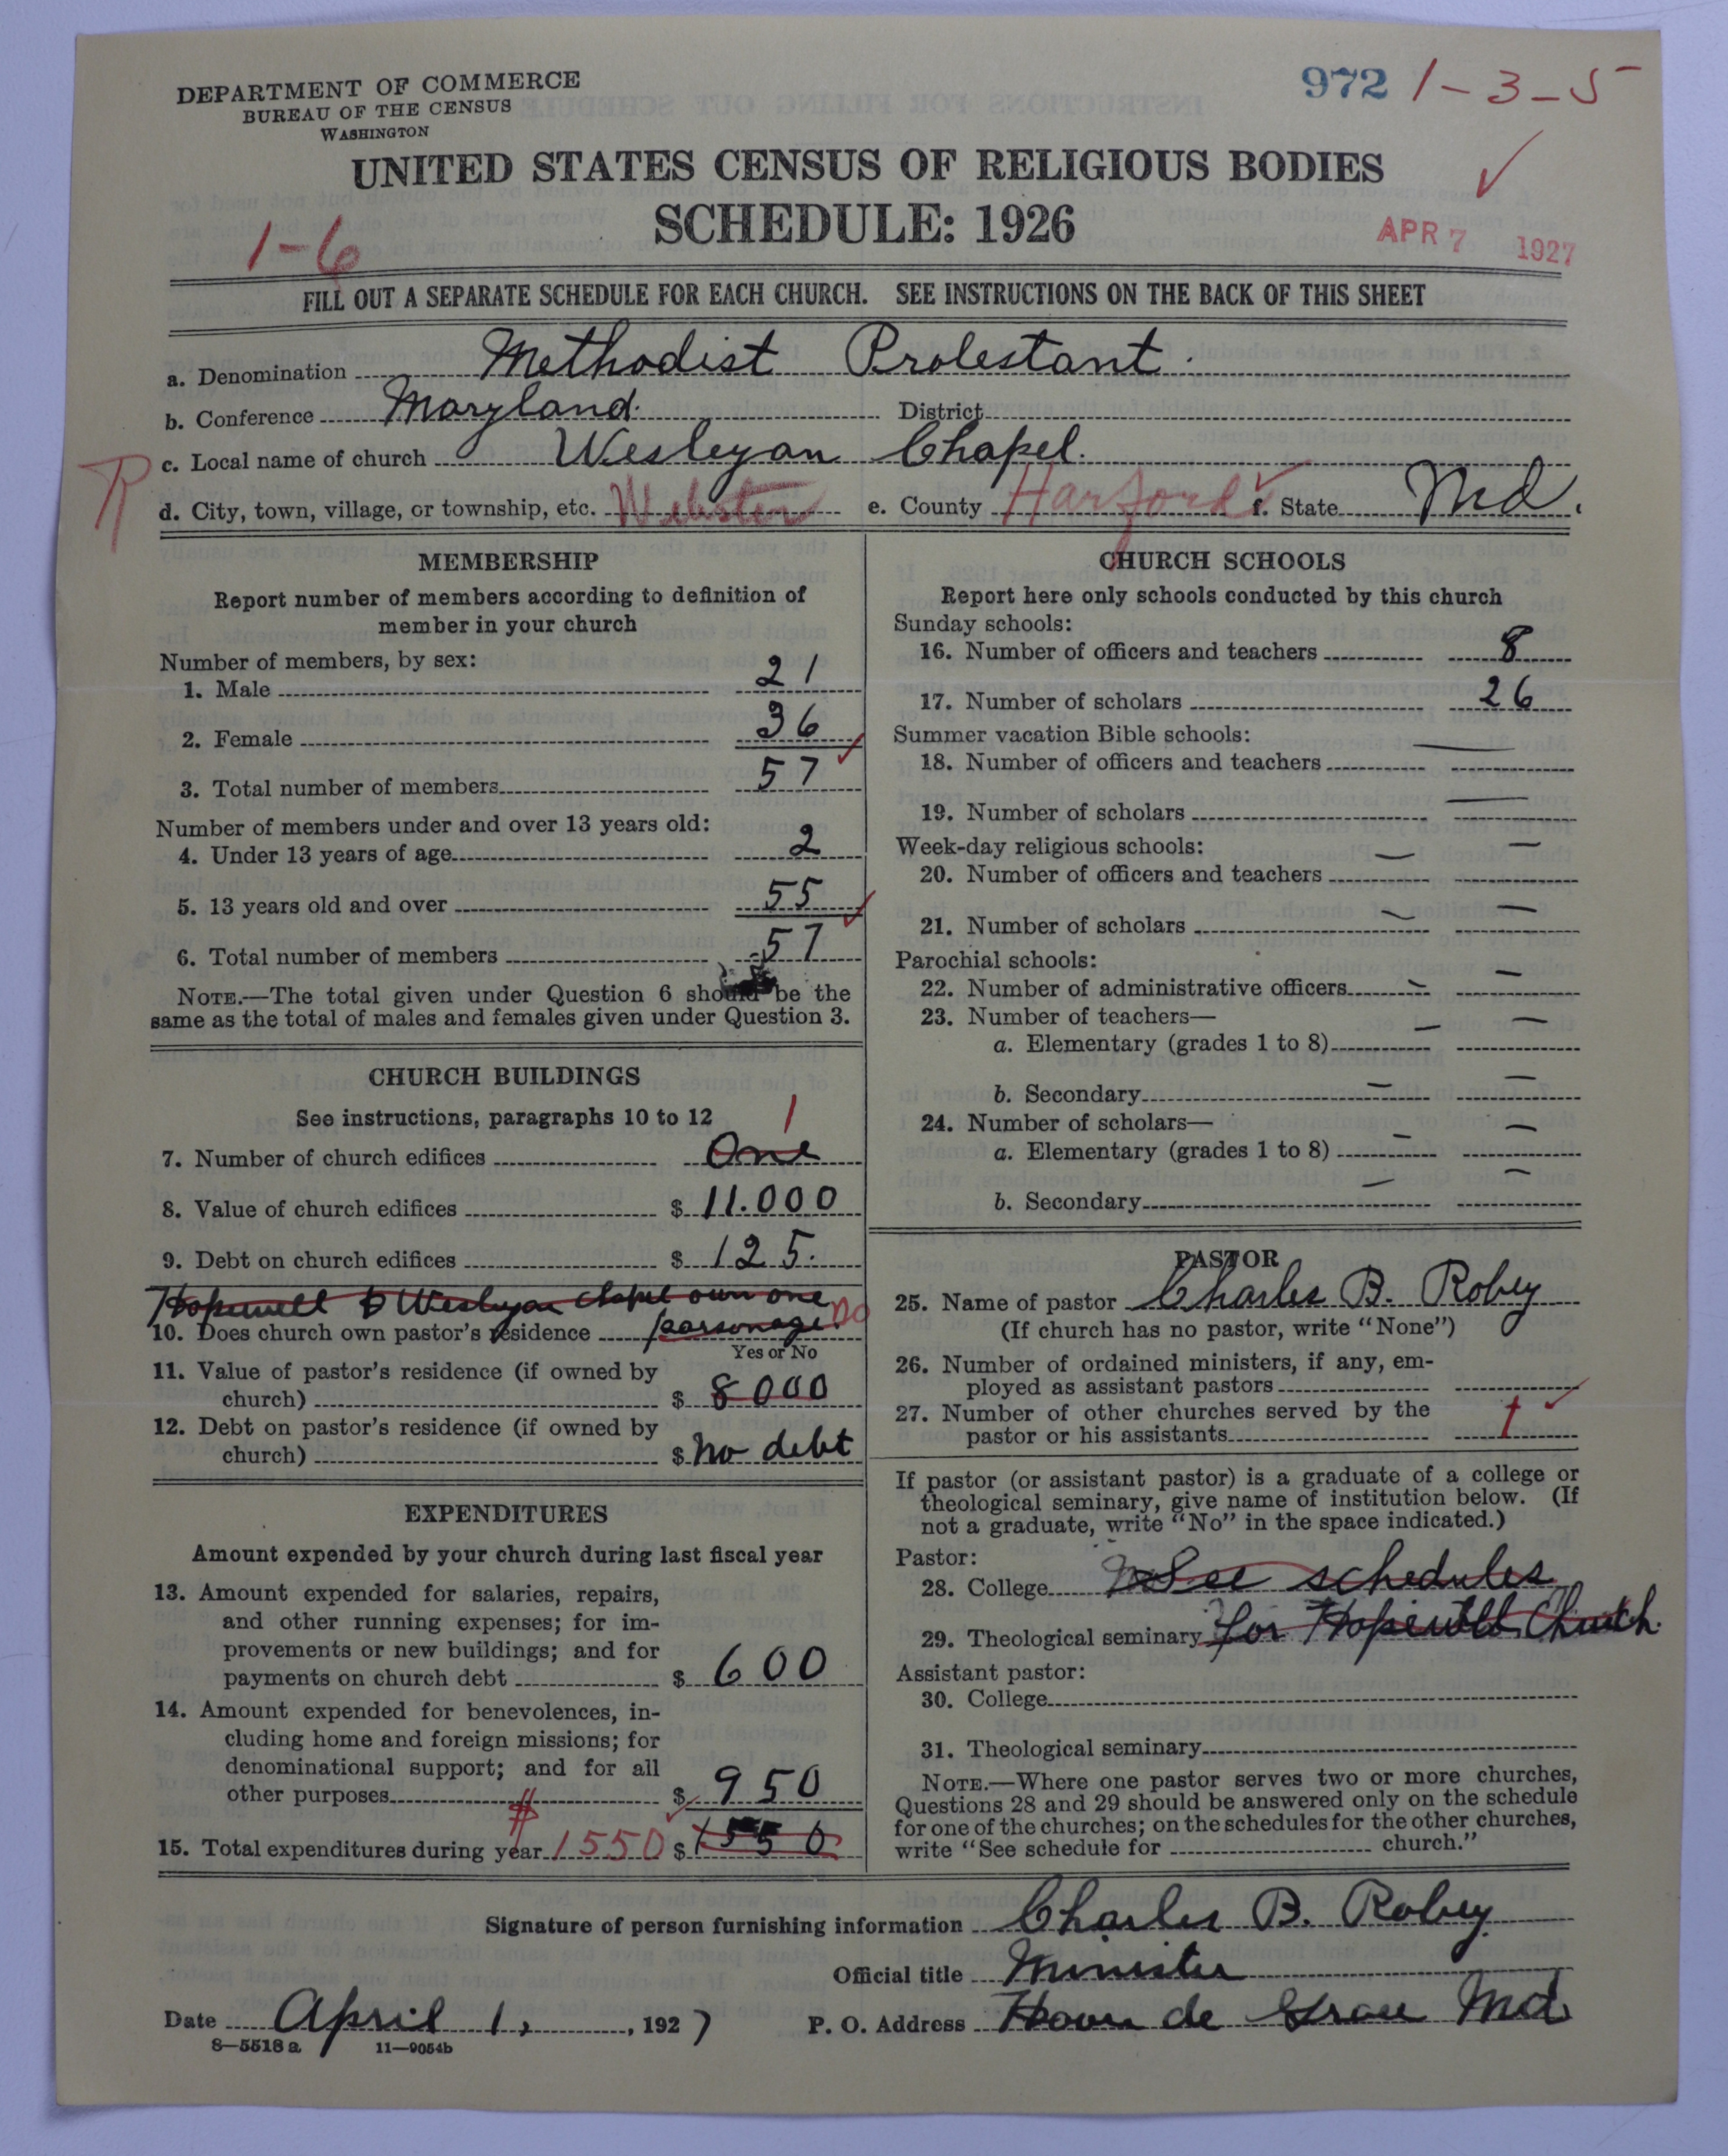 DEPARTMENT OF COMMERCE
BUREAU OF THE CENSUS
WASHINGTON
972 1-3-5
UNITED STATES CENSUS OF RELIGIOUS BODIES
SCHEDULE: 1926
1-6
APR 7 1927
FILL OUT A SEPARATE SCHEDULE FOR EACH CHURCH. SEE INSTRUCTIONS ON THE BACK OF THIS SHEET
a. Denomination Methodist Protestant.
b. Conference Maryland. District
R c. Local name of church Wesleyan Chapel.
d. City, town, village, or township, etc. Webster e. County Harford f. State Md.
MEMBERSHIP
Report number of members according to definition of
member in your church
Number of members, by sex:
1. Male 21
2. Female 36
3. Total number of members 57
Number of members under and over 13 years old:
4. Under 13 years of age 2
5. 13 years old and over 55
6. Total number of members 57
NOTE.—The total given under Question 6 should be the
same as the total of males and females given under Question 3.
CHURCH BUILDINGS
See instructions, paragraphs 10 to 12
1
7. Number of church edifices One
8. Value of church edifices $ 11.000
9. Debt on church edifices $ 125.
Hopewell & Wesleyan chapel own one
10. Does church own pastor's residence parsonage. no
Yes or No
11. Value of pastor's residence (if owned by
church) $ 8000
12. Debt on pastor's residence (if owned by
church) $ no debt
EXPENDITURES
Amount expended by your church during last fiscal year
13. Amount expended for salaries, repairs,
and other running expenses; for im-
provements or new buildings; and for
payments on church debt $ 600
14. Amount expended for benevolences, in-
cluding home and foreign missions; for
denominational support; and for all
other purposes $ 950
15. Total expenditures during year $ 1550 $ 1550
CHURCH SCHOOLS
Report here only schools conducted by this church
Sunday schools:
16. Number of officers and teachers 8
17. Number of scholars 26
Summer vacation Bible schools:
18. Number of officers and teachers —
19. Number of scholars —
Week-day religious schools:
20. Number of officers and teachers — —
21. Number of scholars — —
Parochial schools:
22. Number of administrative officers — —
23. Number of teachers—
a. Elementary (grades 1 to 8) — —
b. Secondary — —
24. Number of scholars—
a. Elementary (grades 1 to 8) — —
b. Secondary — —
PASTOR
25. Name of pastor Charles B. Robey
(If church has no pastor, write "None")
26. Number of ordained ministers, if any, em-
ployed as assistant pastors
27. Number of other churches served by the
pastor or his assistants 1
If pastor (or assistant pastor) is a graduate of a college or
theological seminary, give name of institution below. (If
not a graduate, write "No" in the space indicated.)
Pastor:
28. College See schedules
29. Theological seminary for Hopewell Church.
Assistant pastor:
30. College
31. Theological seminary
NOTE.—Where one pastor serves two or more churches,
Questions 28 and 29 should be answered only on the schedule
for one of the churches; on the schedules for the other churches,
write "See schedule for church."
Signature of person furnishing information Charles B. Robey
Official title Minister
Date April 1, 1927 P. O. Address Havre de Grace Md
8—5518a 11—9054b